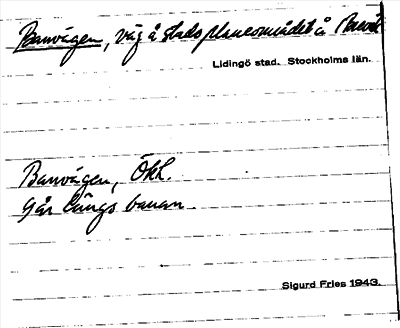 Banvägen, väg å stadsplaneområdet å
Lidingö stad. Stockholms län.
Banvägen, Ökl.
går längs banan
Sigurd Fries 1943.